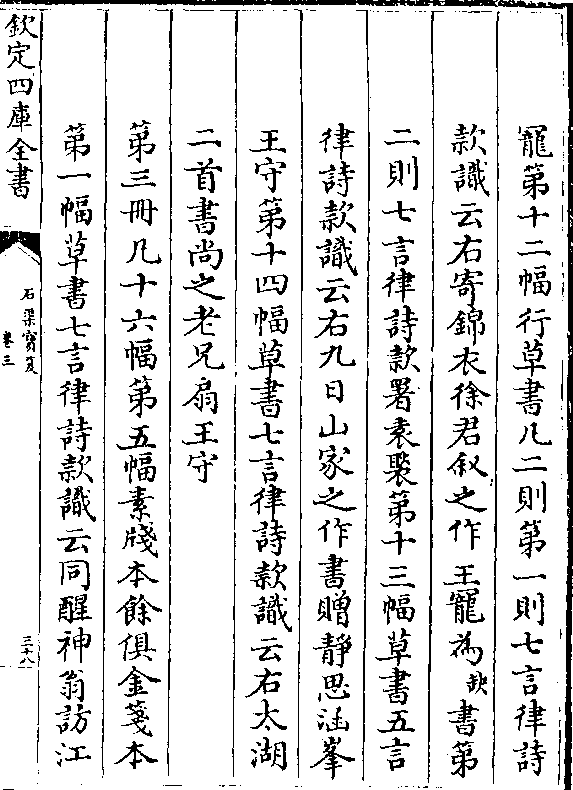 寵第十二幅行草書凡二則第一則七言律詩
款識云右寄錦衣徐君叙之作王寵為缺書第
二則七言律詩款署袁褧第十三幅草書五言
律詩款識云右九日山家之作書贈靜思涵峯
王守第十四幅草書七言律詩款識云右太湖
二首書尚之老兄扇王守
第三冊凡十六幅第五幅素牋本餘俱金箋本
第一幅草書七言律詩款識云同醒神翁訪江
欽定四庫全書
石渠寳笈
卷三
三十八